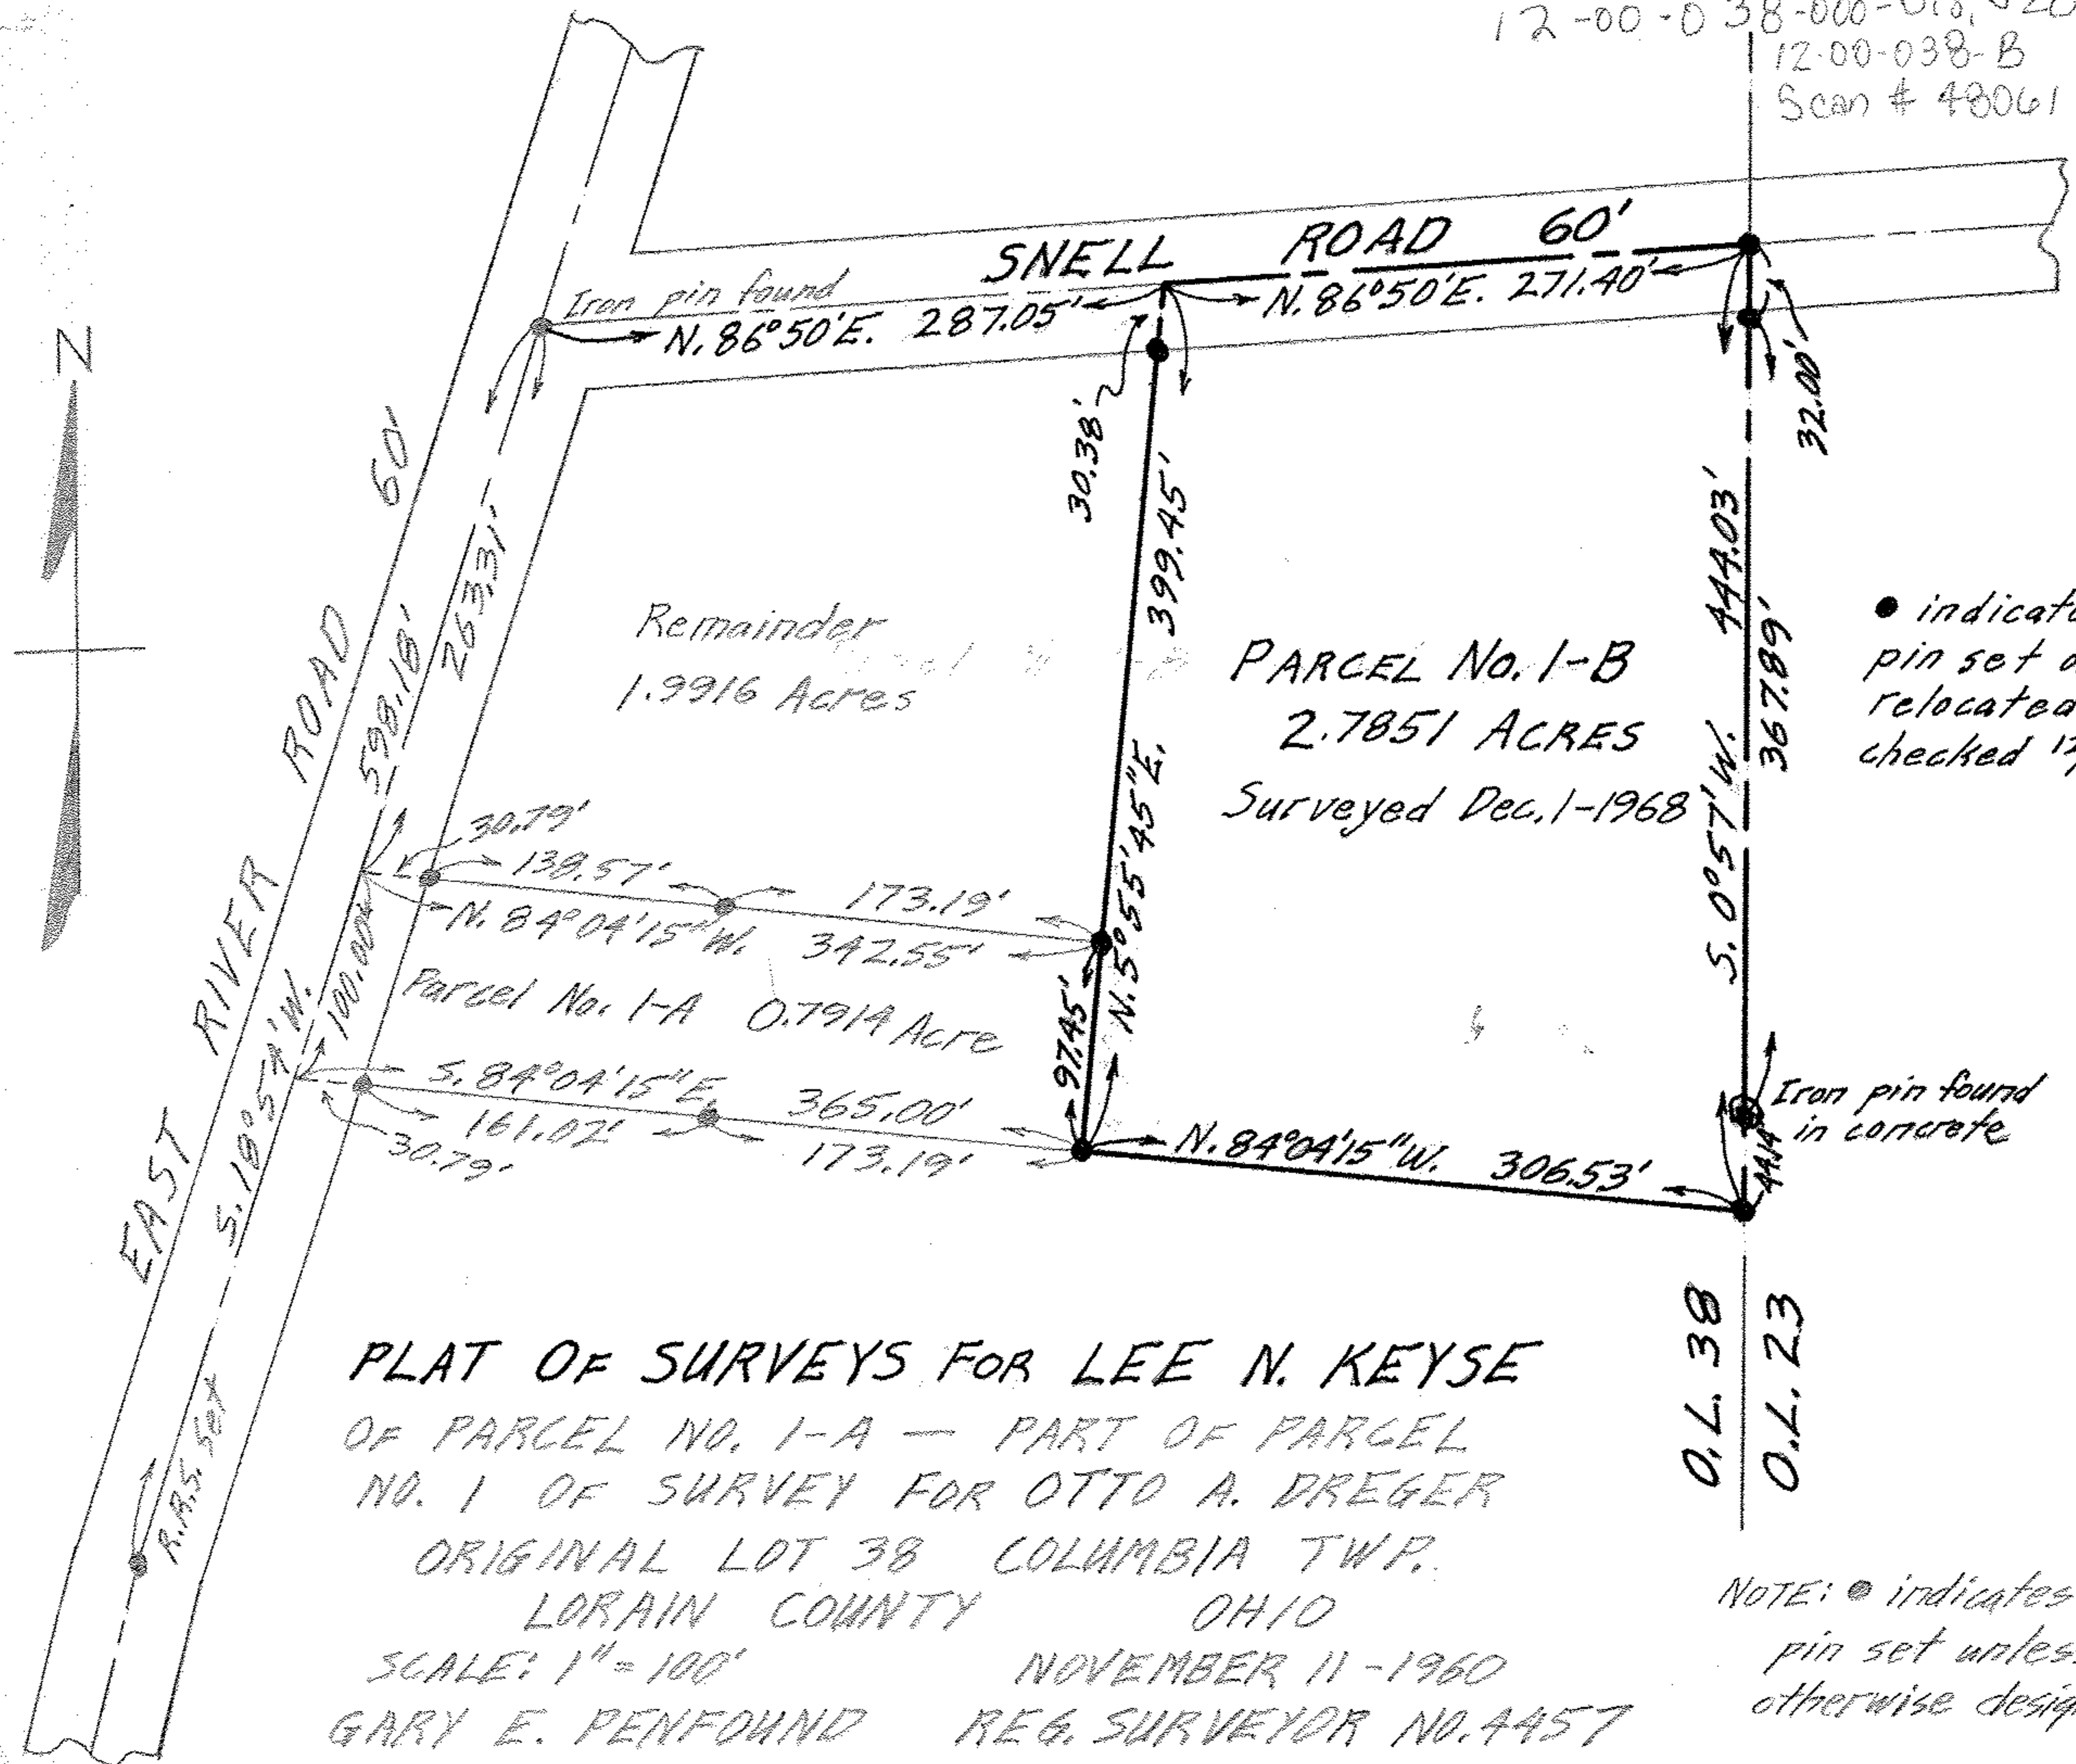 12-00-038-000-018, 020
12-00-038-B
Scan # 48061
N
SNELL ROAD 60'
Iron pin found
N. 86°50'E. 287.05'
N. 86°50'E. 271.40'
32.00'
30.38'
399.45'
N. 5°55'45"E.
97.45'
444.03'
367.89'
S. 0°57'W.
44.14
EAST RIVER ROAD 60'
263.31'
598.18'
100.00'
S. 18°57'W.
Remainder
1.9916 Acres
PARCEL No. 1-B
2.7851 ACRES
Surveyed Dec. 1-1968
● indicat
pin set
relocated
checked
30.79'
138.57'
173.19'
N. 84°04'15"W. 342.55'
Parcel No. 1-A 0.7914 Acre
S. 84°04'15"E. 365.00'
161.02'
173.19'
30.79'
N. 84°04'15"W. 306.53'
Iron pin found
in concrete
O.L. 38
O.L. 23
R.R.S. Set
PLAT OF SURVEYS FOR LEE N. KEYSE
OF PARCEL NO. 1-A — PART OF PARCEL
NO. 1 OF SURVEY FOR OTTO A. DREGER
ORIGINAL LOT 38 COLUMBIA TWP.
LORAIN COUNTY OHIO
SCALE: 1" = 100' NOVEMBER 11-1960
GARY E. PENFOUND REG. SURVEYOR NO. 4457
NOTE: ● indicates
pin set unles
otherwise desig